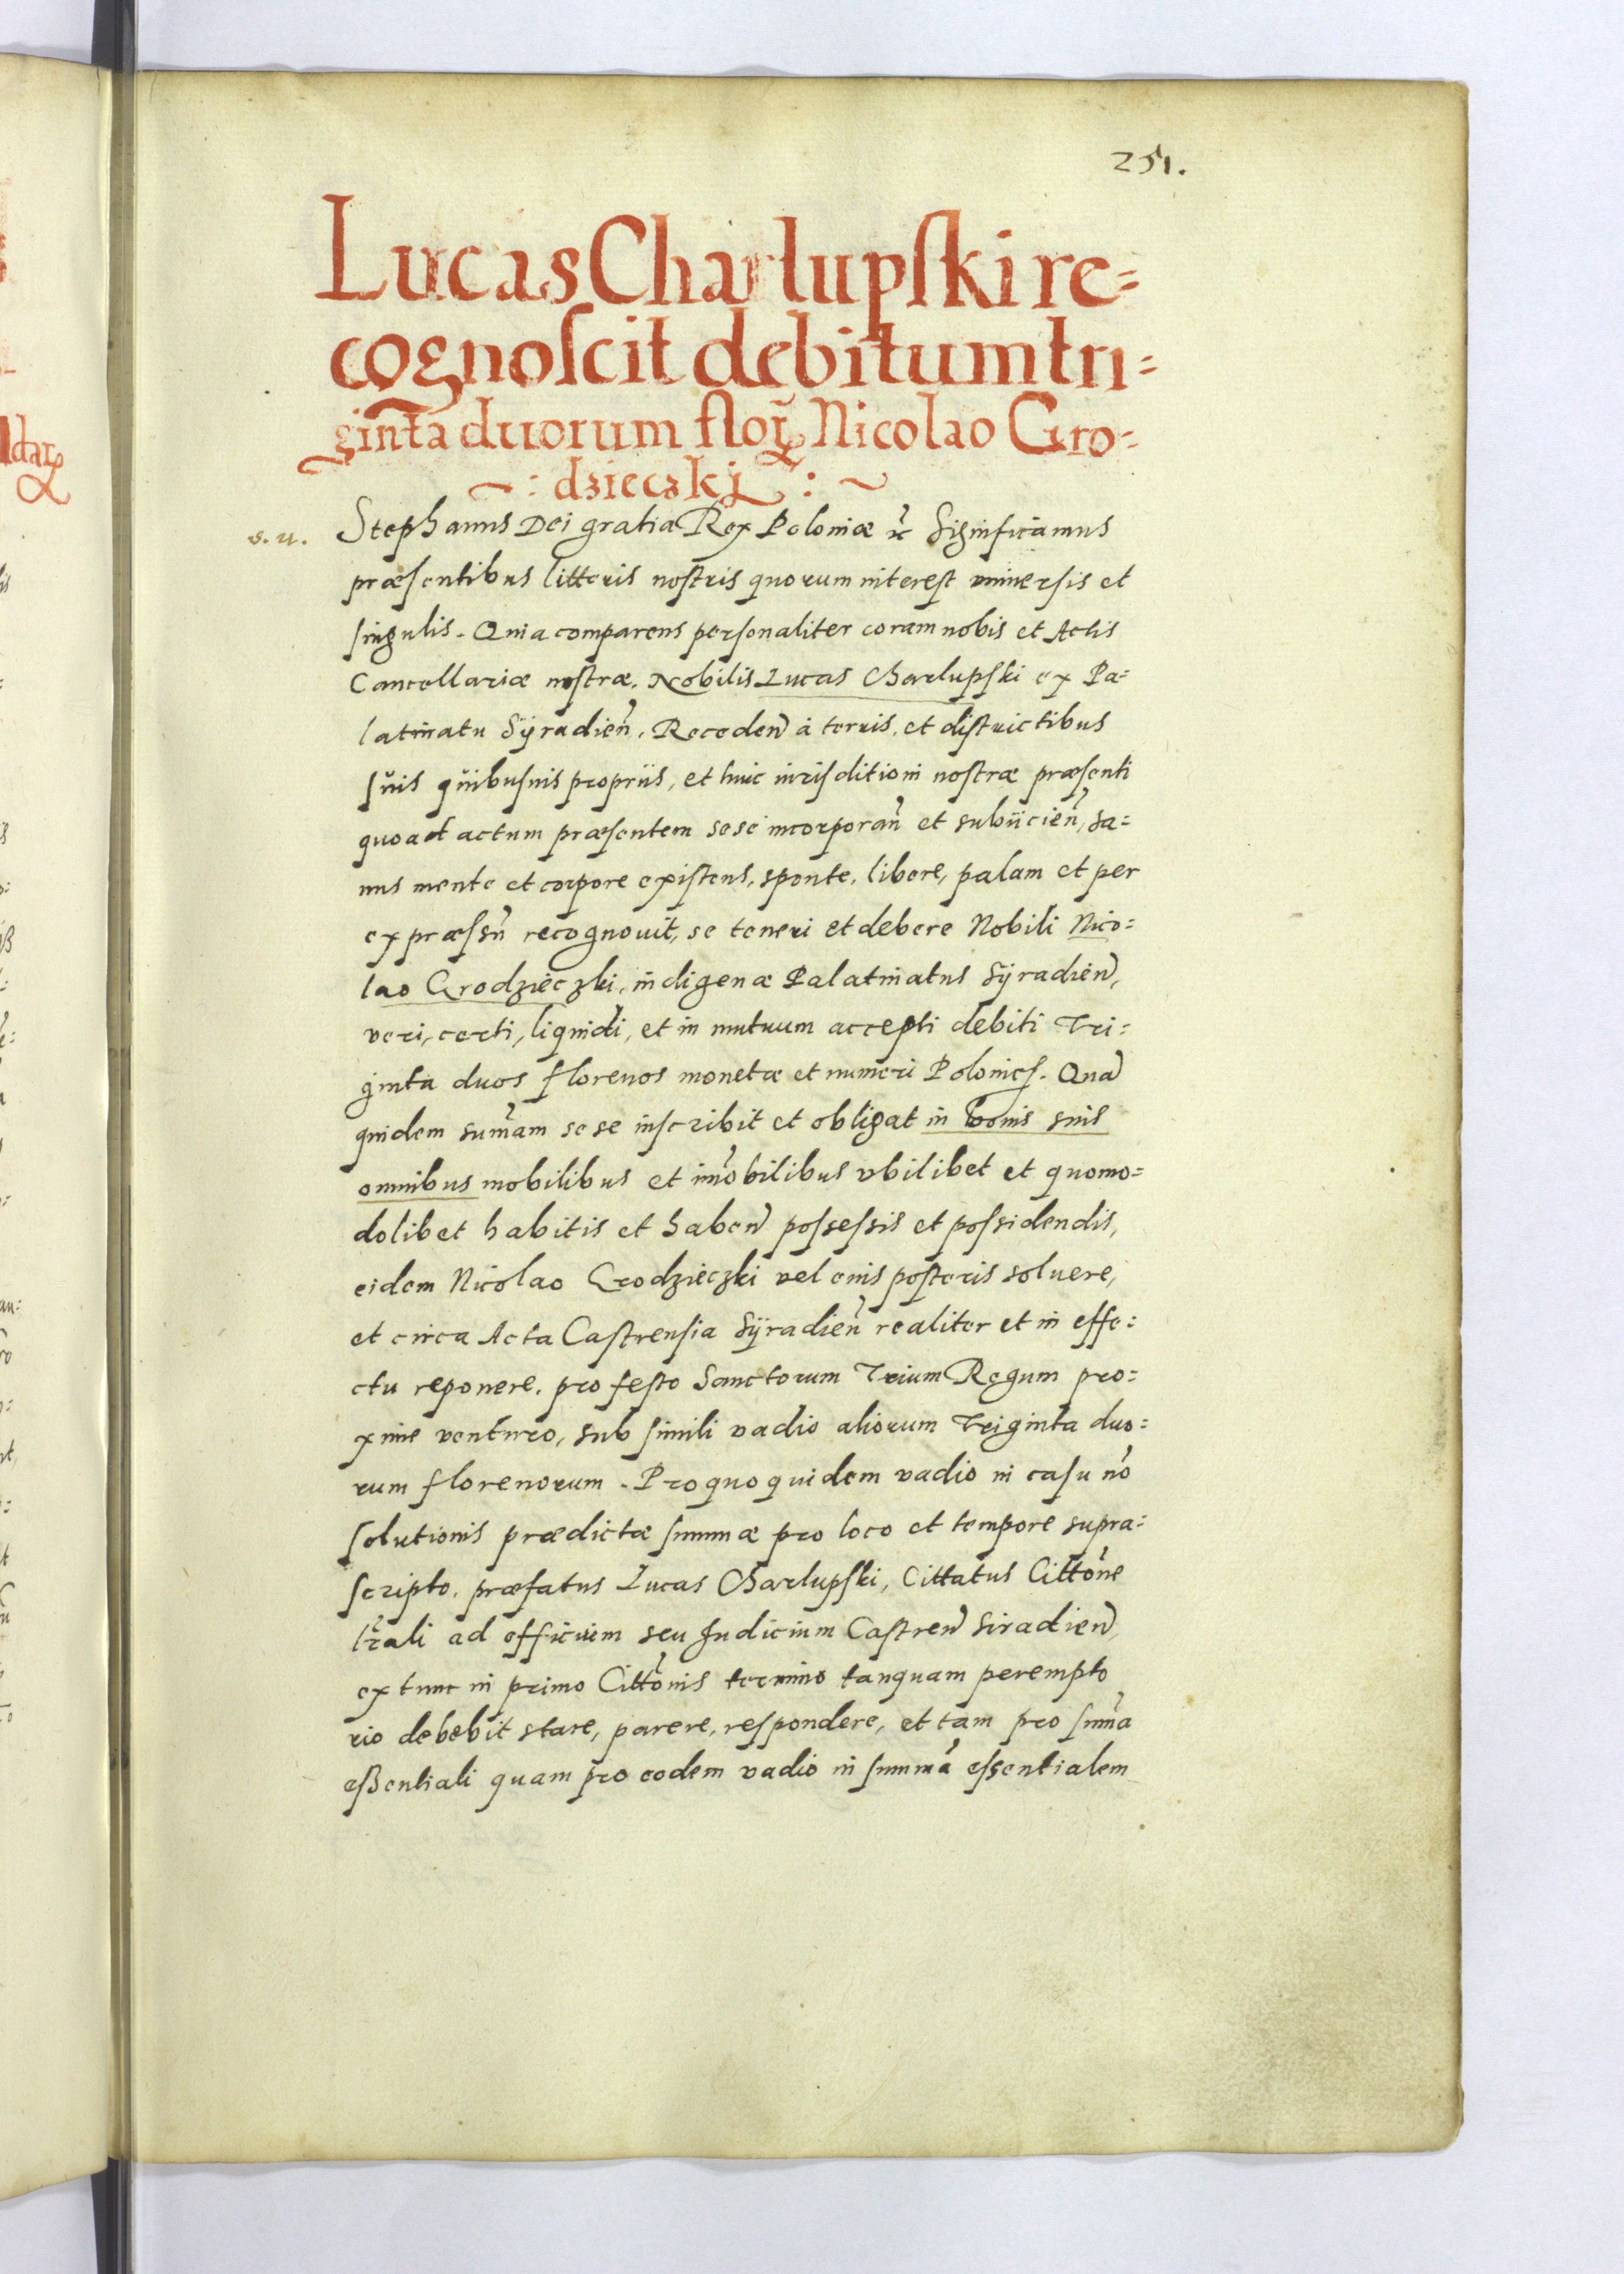 251.
Lucas Charlupski re=
cognoscit debitum tri=
ginta duorum flor. Nicolao Gro=
~ : dzieczki : ~
s. u.
Stephanus Dei gratia Rex Poloniæ &c Significamus
præsentibus litteris nostris quorum interest universis et
singulis. Quia comparens personaliter coram nobis et Actis
Cancellariæ nostræ, Nobilis Lucas Charlupski ex Pa=
latinatu Syradien̄. Receden̄ à terris, et districtibus
suis quibusuis propriis, et huic iurisditioni nostræ præsenti
quoad actum præsentem sese incorporan̄ et subiicien̄, sa=
nus mente et corpore existens, sponte, libere, palam et per
expræssū recognouit, se teneri et debere Nobili Nico=
lao Grodzieczki, indigenæ Palatinatus Syradien̄,
veri, certi, liquidi, et in mutuum accepti debiti Tri=
ginta duos florenos monetæ et numeri Polonics. Quā
quidem sum̄am sese inscribit et obligat in bonis suis
omnibus mobilibus et im̄obilibus vbilibet et quomo=
dolibet habitis et haben̄ possessis et possidendis,
eidem Nicolao Grodzieczki vel eius posteris soluere,
et circa Acta Castrensia Syradien̄ realiter et in effe=
ctu reponere, pro festo Sanctorum Trium Regum pro=
xime venturo, sub simili vadio aliorum Triginta duo=
rum florenorum. Pro quo quidem vadio in casu nō
solutionis prædictæ summæ pro loco et tempore supra=
scripto, præfatus Lucas Charlupski, Cittatus Cittōne
lr̄ali ad officium seu Judicium Castren̄ Siradien̄,
extunc in primo Cittōnis termino tanquam perempto
rio debebit stare, parere, respondere, et tam pro sum̄a
eßentiali quam pro eodem vadio in summā essentialem